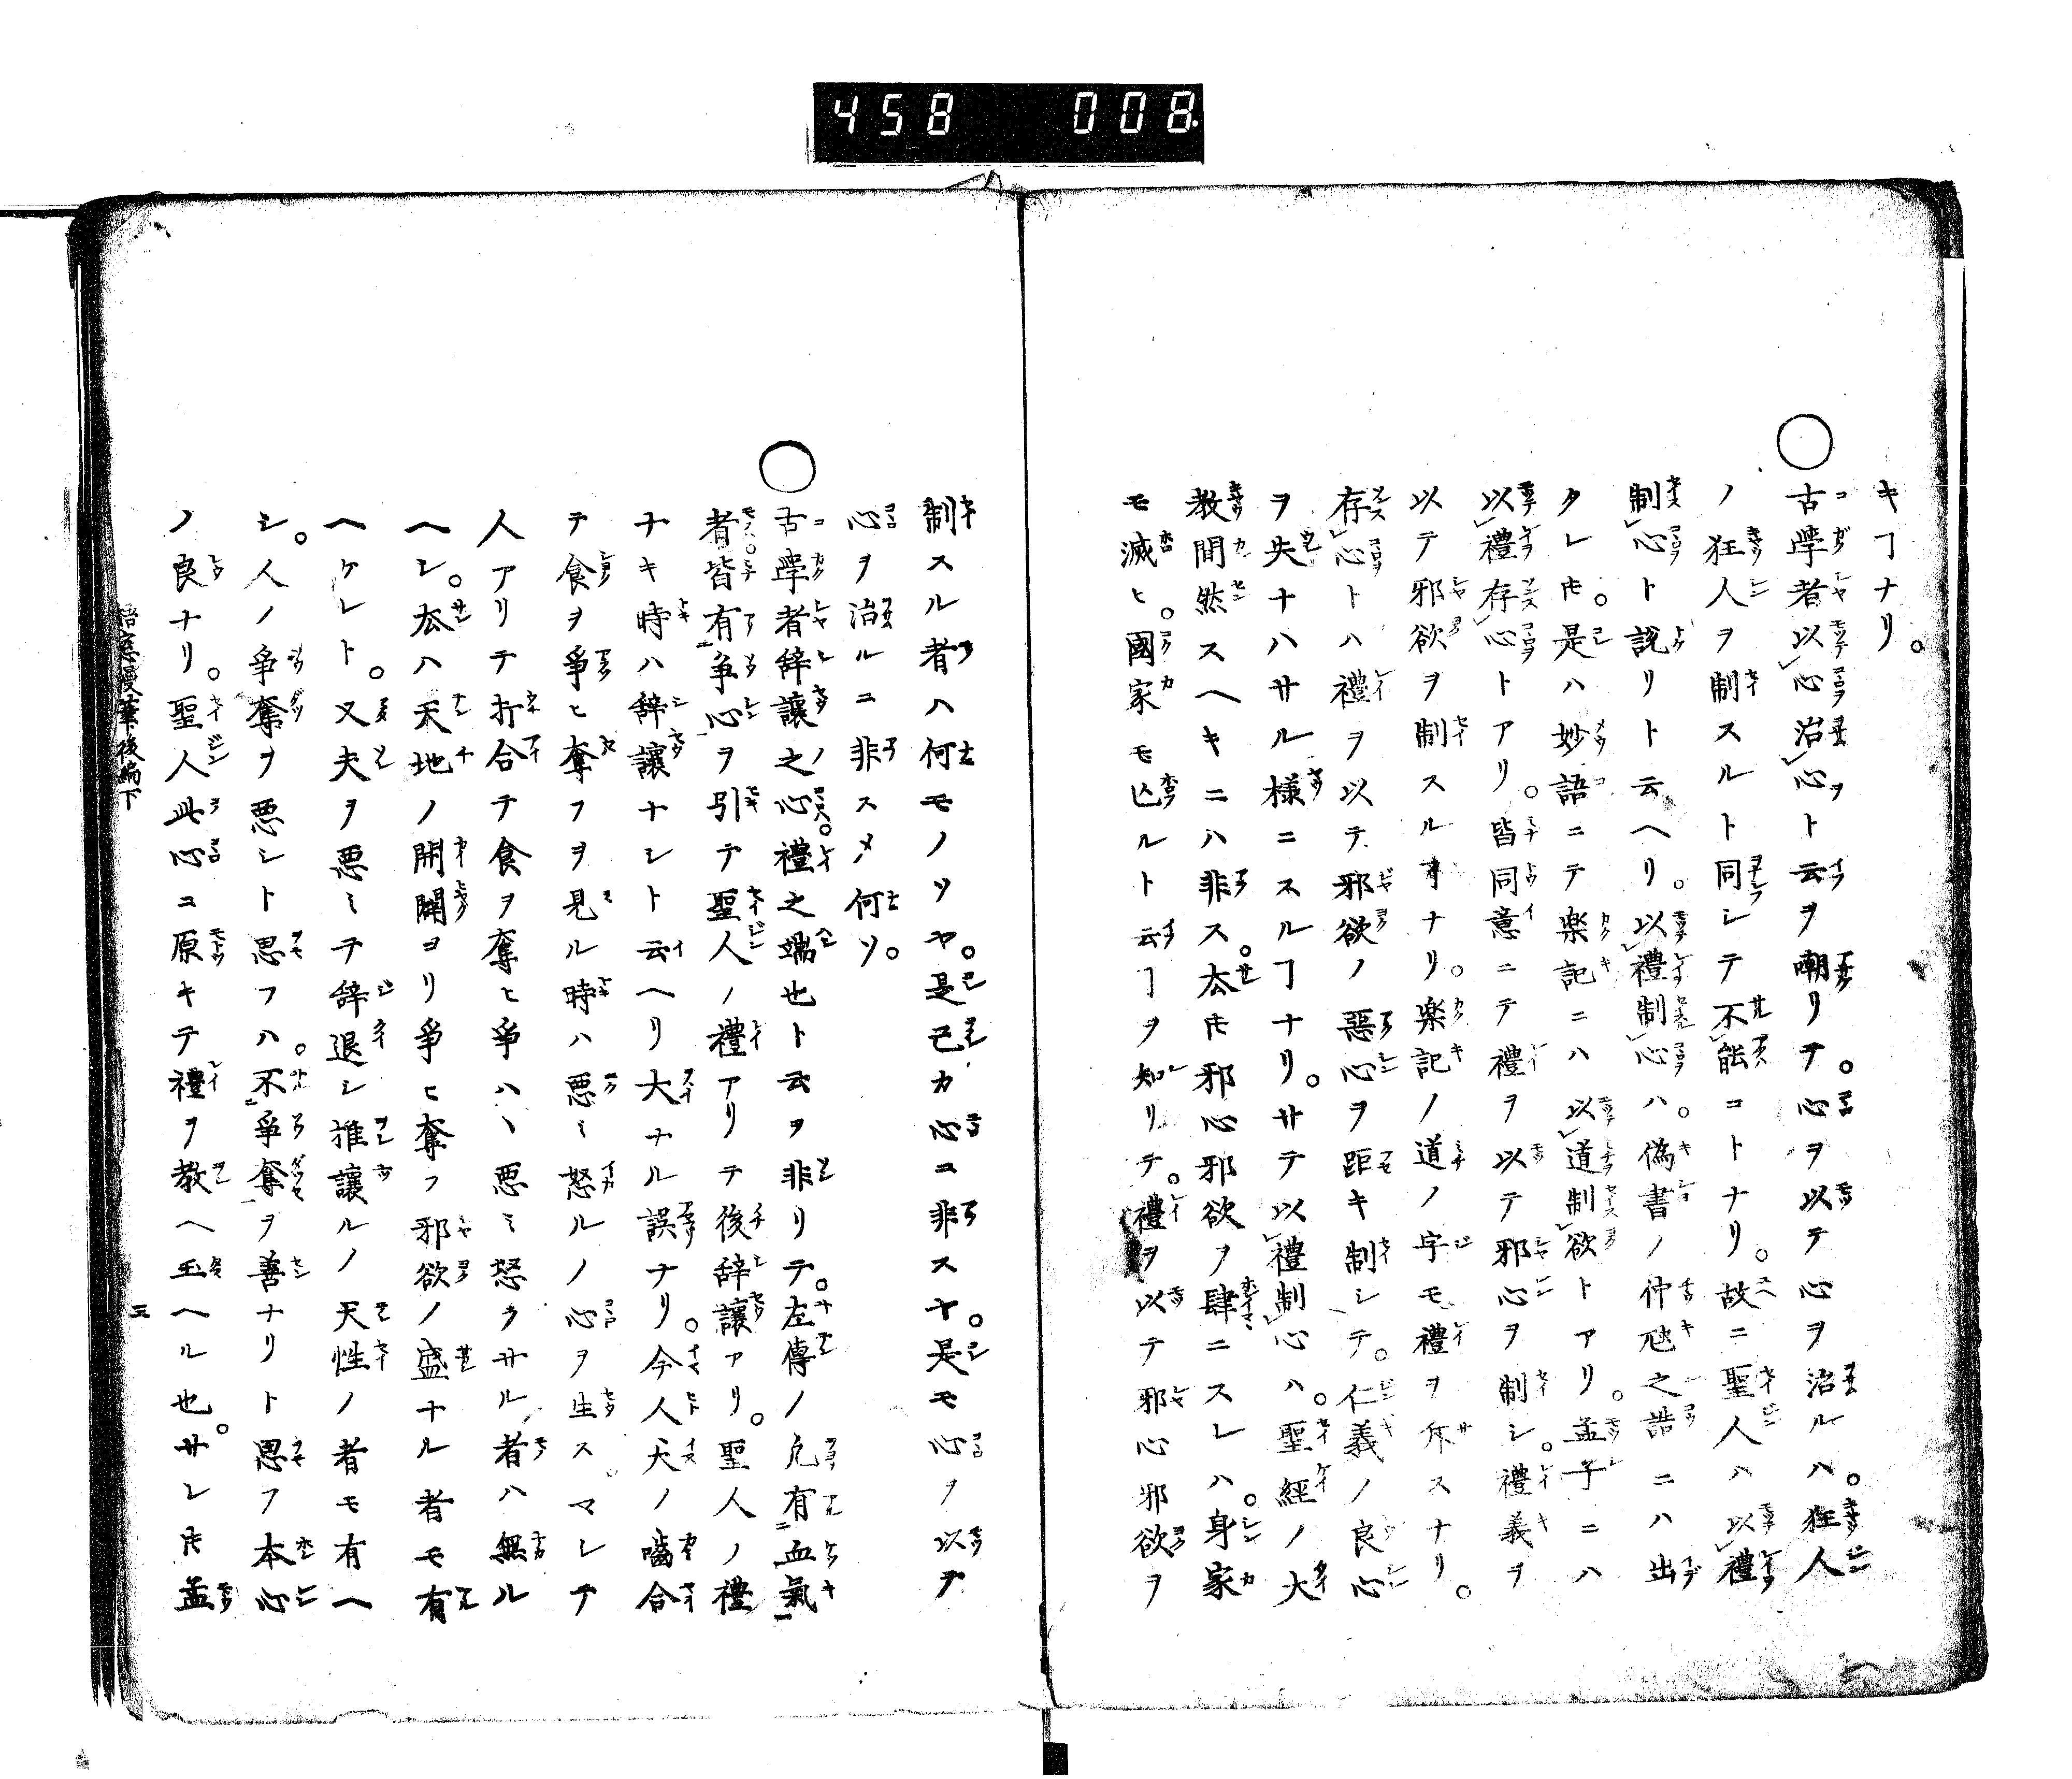 458 008
キヿナリ。
○古學者以心治心ト云ヲ嘲リテ。心ヲ以テ心ヲ治ルハ。狂人
ノ狂人ヲ制スルト同シテ不能コトナリ。故ニ聖人ハ以禮
制心ト説リト云ヘリ。以禮制心ハ。偽書ノ仲虺之誥ニハ出
タレ𪜈。是ハ妙語ニテ楽記ニハ以道制欲トアリ。孟子ニハ
以禮存心トアリ。皆同意ニテ禮ヲ以テ邪心ヲ制シ。禮義ヲ
以テ邪欲ヲ制スルヿナリ。楽記ノ道ノ字モ禮ヲ斥スナリ。
存心トハ禮ヲ以テ邪欲ノ惡心ヲ距キ制シテ。仁義ノ良心
ヲ失ナハサル様ニスルヿナリ。サテ以禮制心ハ。聖經ノ大
教間然スヘキニハ非ス。𡗗𪜈邪心邪欲ヲ肆ニスレハ。身家
モ滅ヒ。國家モ亡ルト云ヿヲ知リテ。禮ヲ以テ邪心邪欲ヲ
制スル者ハ何モノソヤ。是己カ心ニ非スヤ。是モ心ヲ以テ
心ヲ治ルニ非スメ何ソ。
○古學者辞讓之心禮之端也ト云ヲ非リテ。左傳ノ凡有血氣
者皆有爭心ヲ引テ聖人ノ禮アリテ後辞讓アリ。聖人ノ禮
ナキ時ハ辞讓ナシト云ヘリ大ナル誤ナリ。今人犬ノ嚙合
テ食ヲ爭ヒ奪フヲ見ル時ハ悪ミ怒ルノ心ヲ生ス。マレテ
人アリテ折合テ食ヲ奪ヒ爭ハヽ悪ミ怒ラサル者ハ無ル
ヘシ。𡗗ハ天地ノ開闢ヨリ爭ヒ奪フ邪欲ノ盛ナル者モ有
ヘケレト。又夫ヲ悪ミテ辞退シ推讓ルノ天性ノ者モ有ヘ
シ。人ノ爭奪ヲ悪シト思フハ。不爭奪ヲ善ナリト思フ本心
ノ良ナリ。聖人此心ニ原キテ禮ヲ教ヘ玉ヘル也。サレ𪜈孟
梧窓漫筆後編下 三